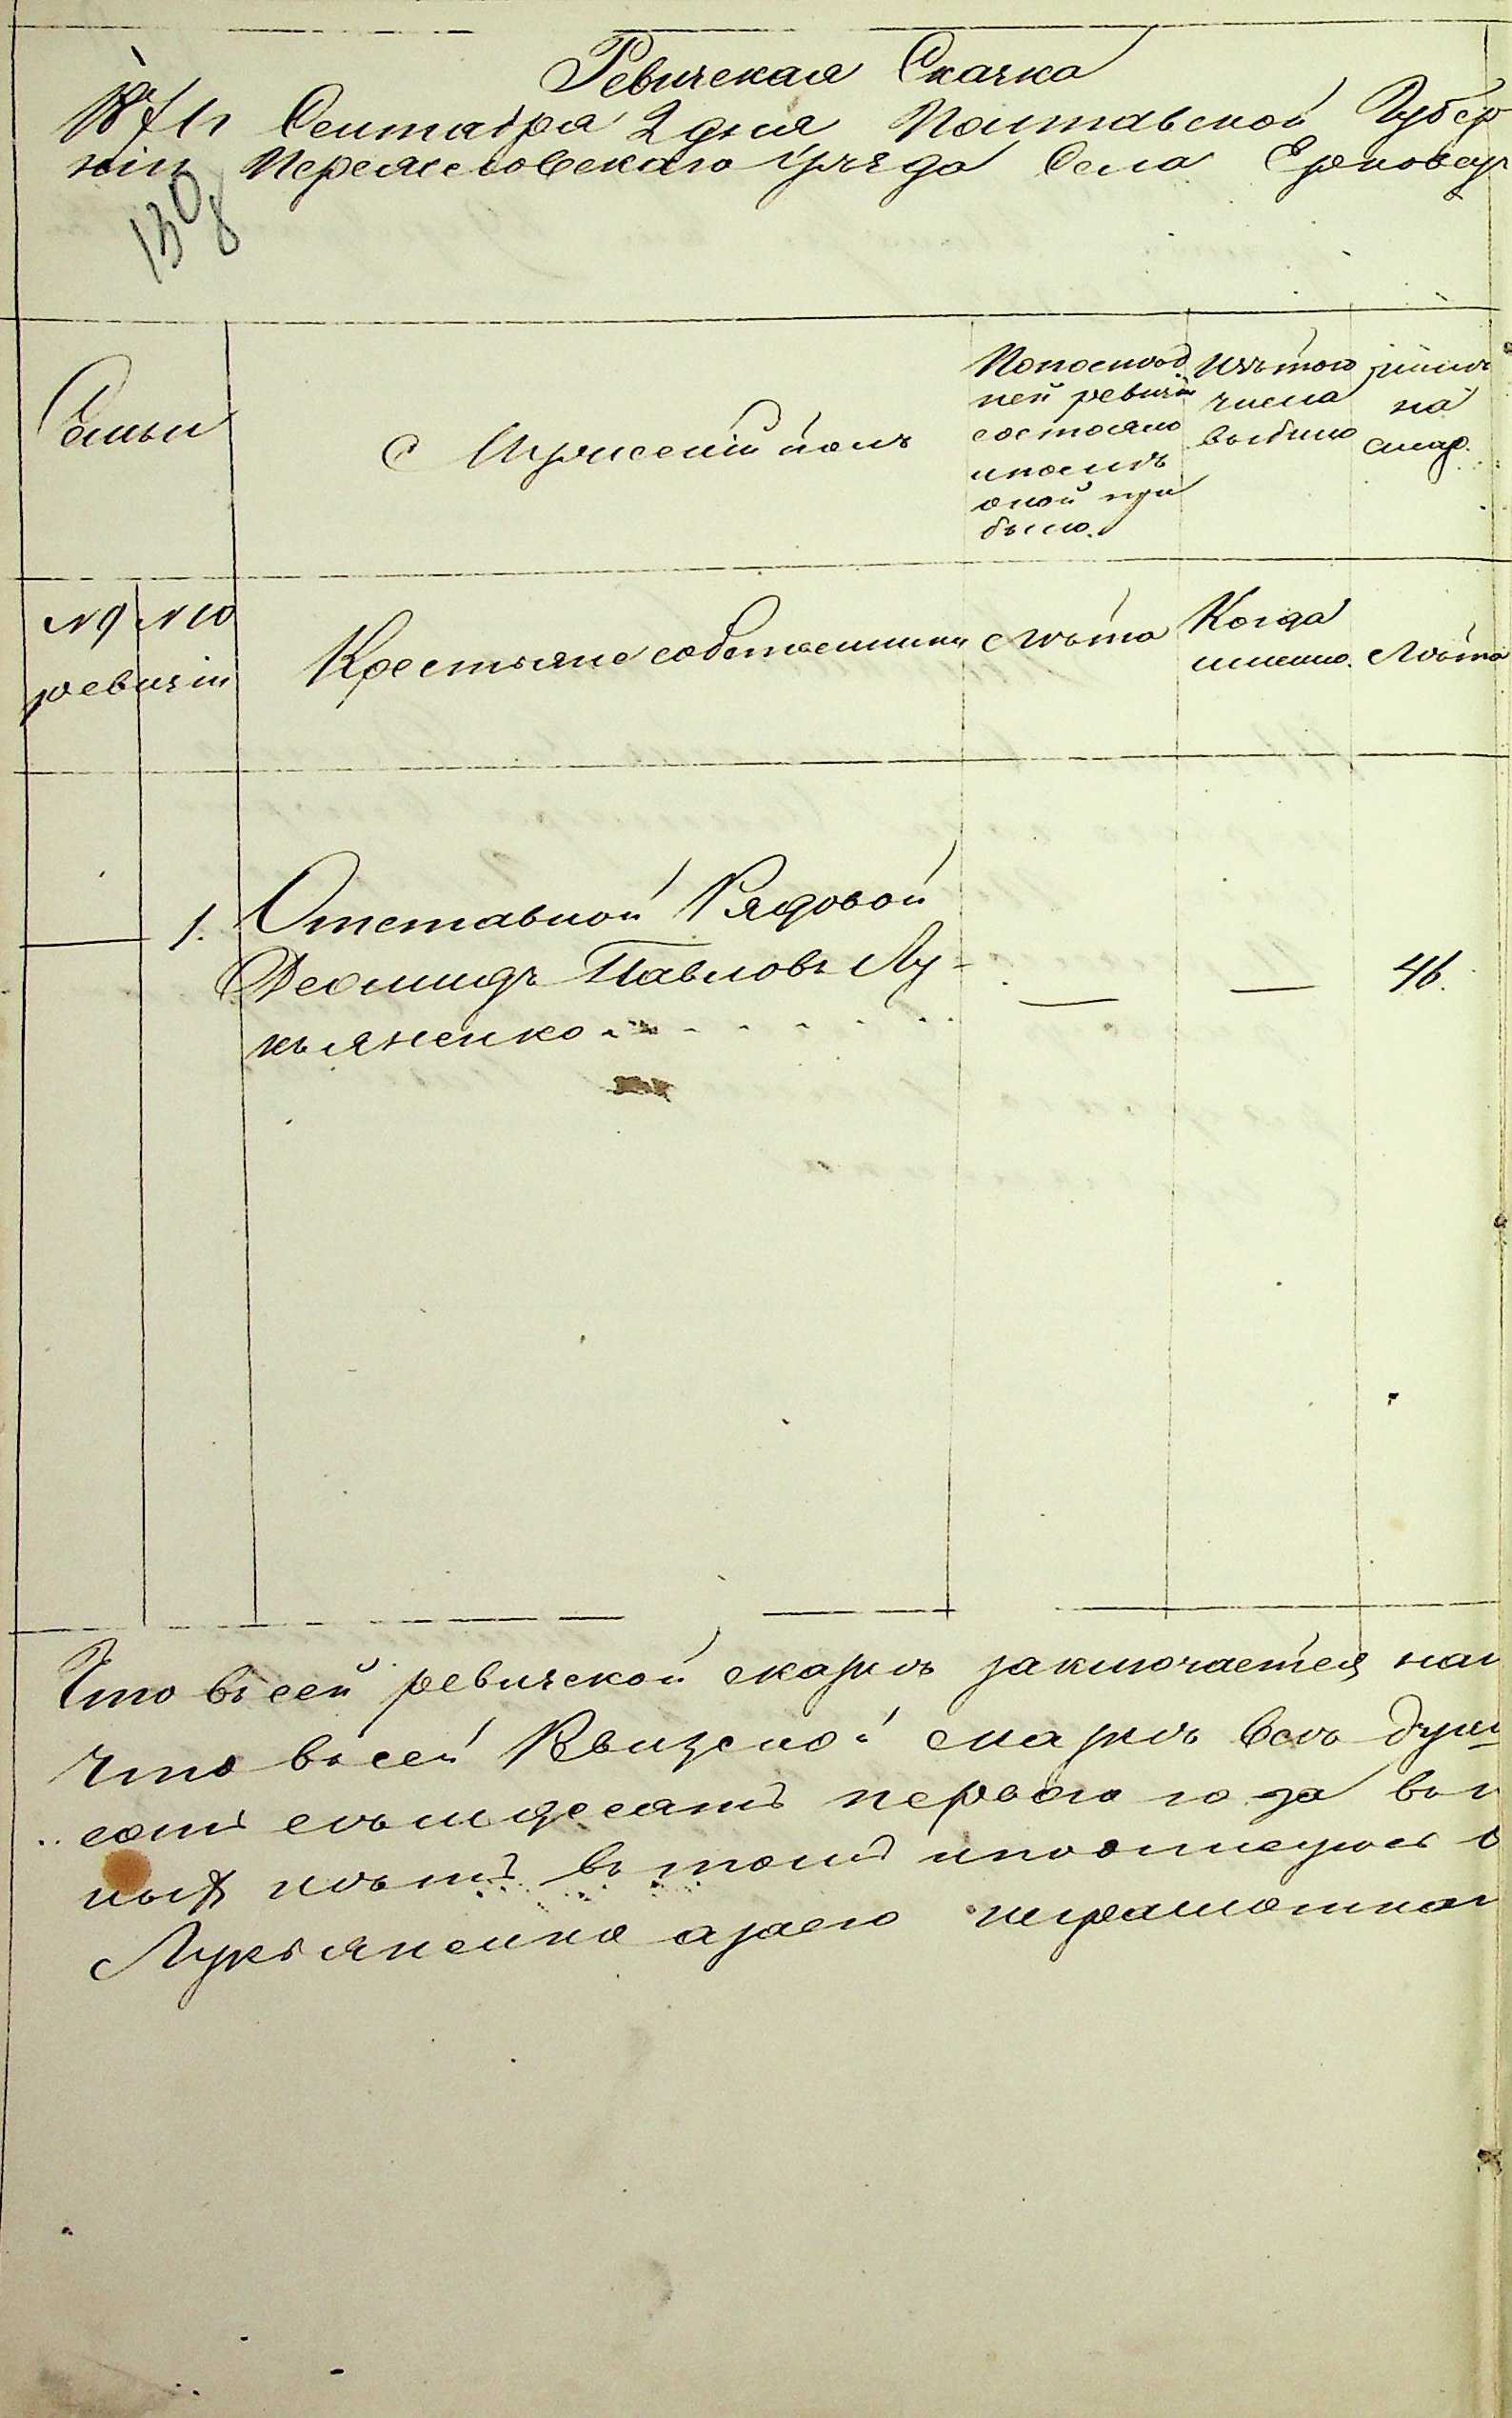 Ревизская Сказка
1871 Сентября 2 дня Полтавской Губер
ніи Переяславскаго уѣзда Села Ерковец
130
8
Семьи
Мужескій полъ
Попослѣд
ней ревизіи
состояло
ипослѣ
оной при
было.
Изътого
числа
выбыло
нынѣ
на
лицо.
N 9 N 10
ревизіи
Крестьяне собственники
Лѣта
Когда
именно.
Лѣта
1. Отставной Рядовой
Деомидъ Павловъ Лу-
кьяненко
46.
Что всей ревизской сказкѣ заключается нал
Что всей сказкѣ всѣ души
сотъ семдесятъ перваго года
нѣтъ въ томъ иподписуюсь
Лукьяненко азаего неграмотнаг